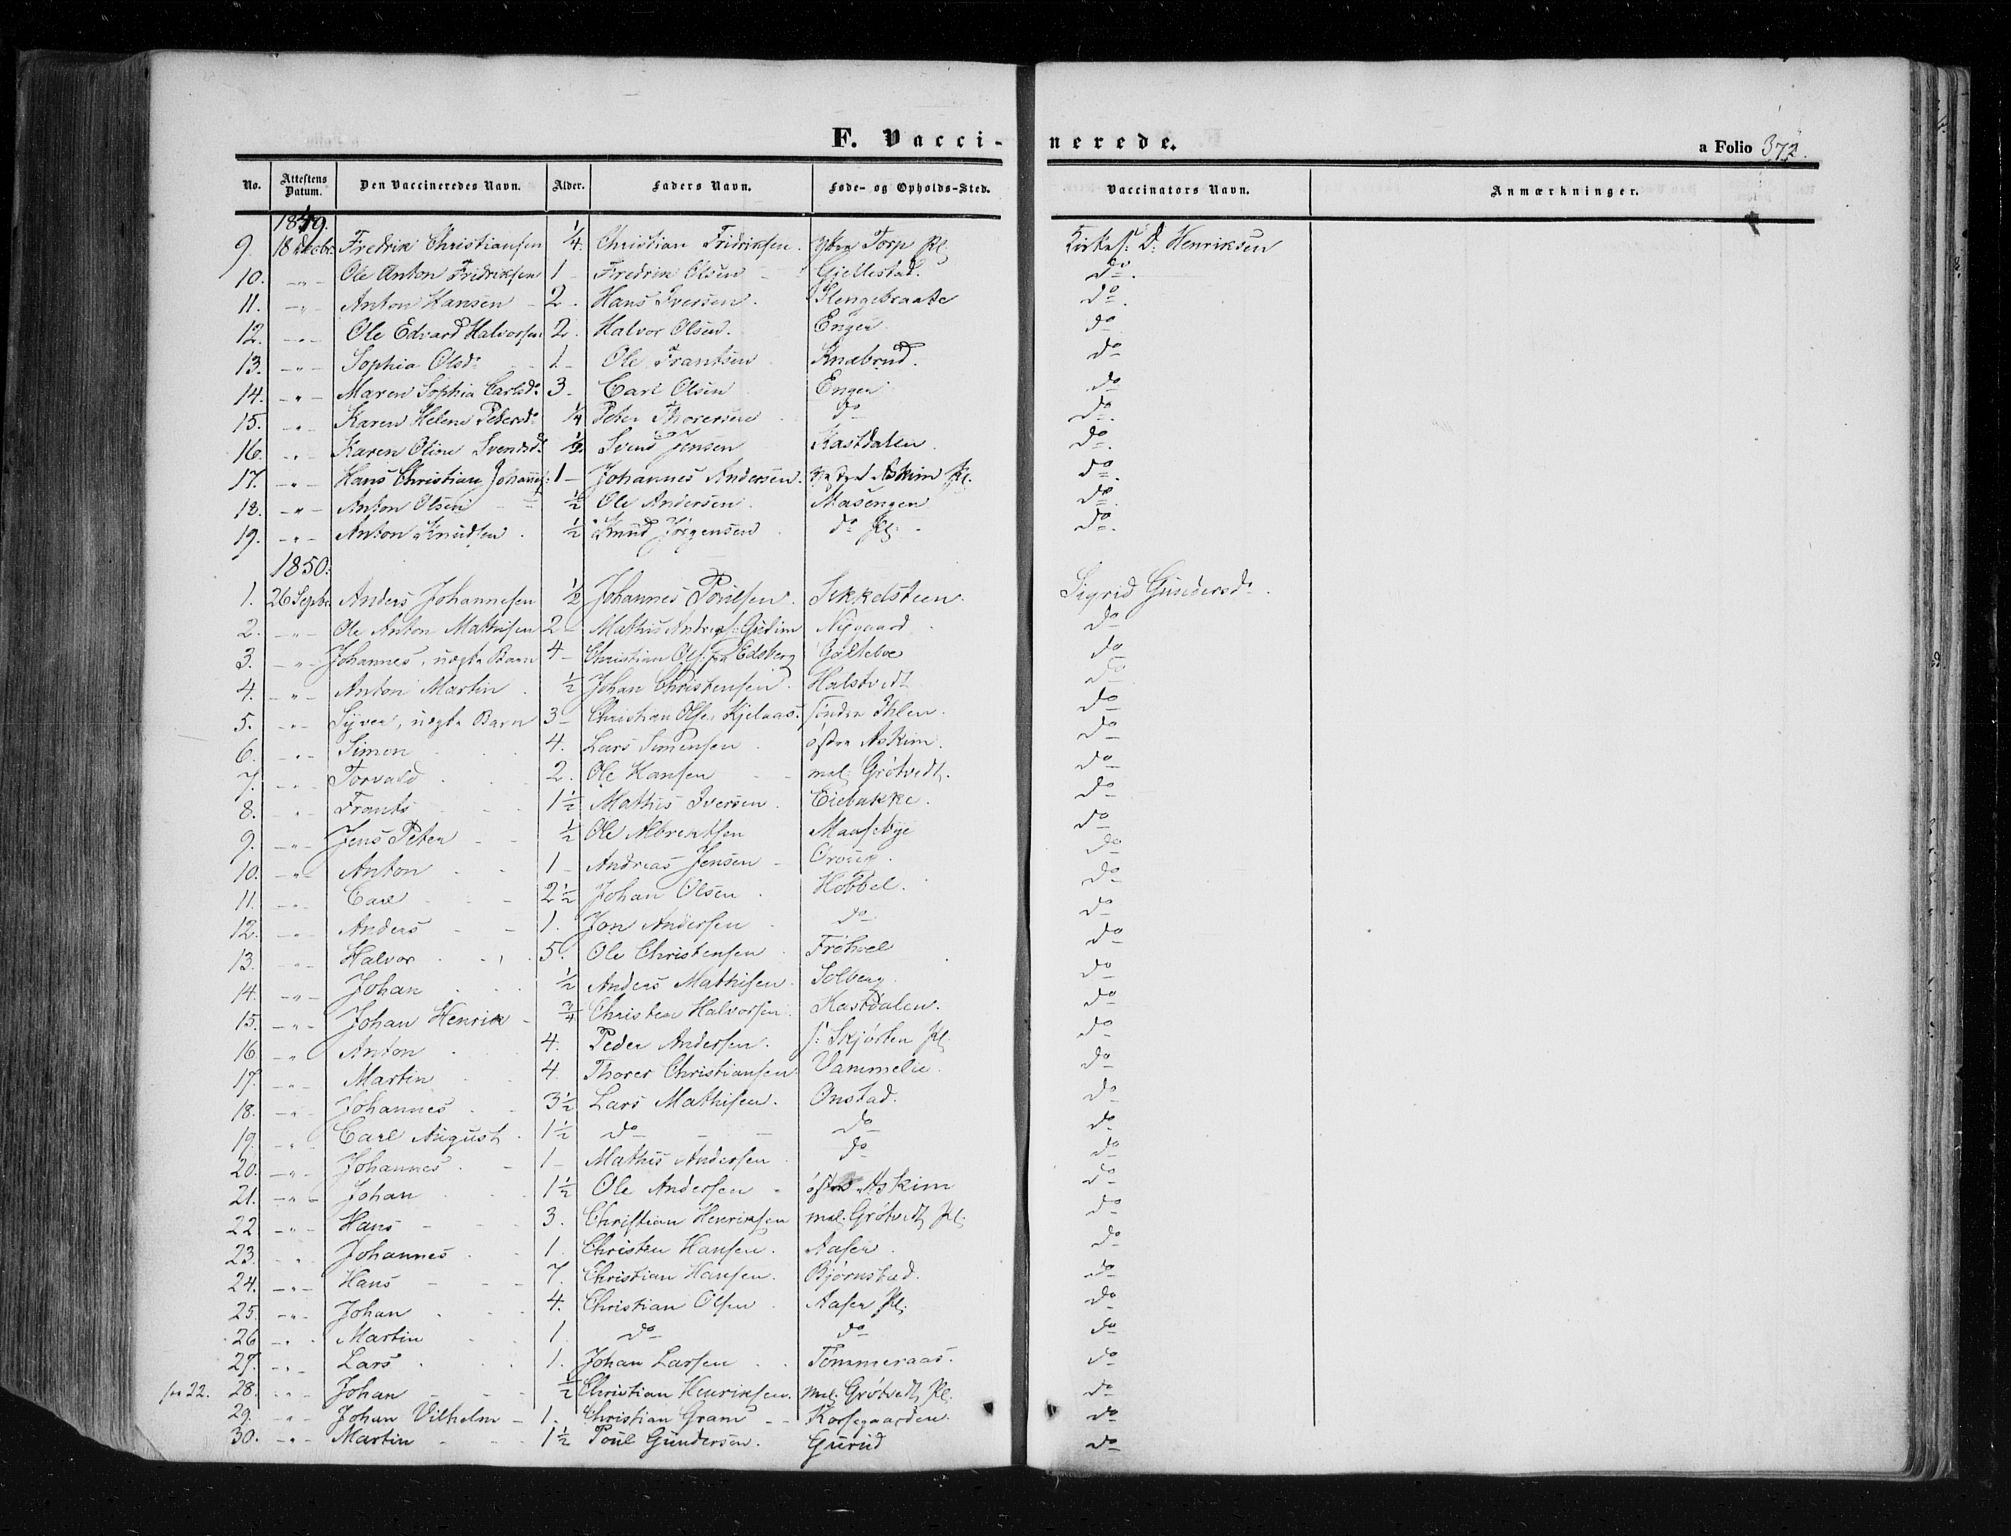 F. Vacci-nerede.
a Folio 372.
No. Attestens Datum. Den Vaccineredes Navn. Alder. Faders Navn. Føde- og Opholds-Sted. Vaccinators Navn. Anmærkninger.
1849.
9. 18 Decbr. Fredrik Christiansen 1/4 Christian Fridriksen. Torp Pl. D. Henriksen
10. -"- Ole Anton Fridriksen 1 - Fredrik Olsen - Gjellestad. do.
11. -"- Anton Hansen - 2. Hans Iversen. Slengebraate do.
12. -"- Ole Edvard Halvorsen 2. Halvor Olsen. Enger. do
13. -"- Sophia Olsd. 1 - Ole Frantsen Knabrud. do
14. -"- Maren Sophia Carlsd. 3. Carl Olsen Enger do
15. -"- Karen Helene Petersd. 1/4 Peter Thoresen do do.
16. -"- Karen Oline Svendsd. 1/2. Svend Jensen Kastdalen do.
17. -"- Hans Christian 1 - Johannes Andersen. Askim Pl. do.
18. -"- Anton Olsen - 1/2 Ole Andersen. Masengen do.
19. -"- Anton Knudsen. 1/2 Knud Jörgensen do Pl. do.
1850.
1. 26 Septbr. Anders Johannesen 1/2 Johannes Poulsen. Sekkelsteen. Sigrid Gundersd.
2. -"- Ole Anton Mathisen 2 - Mathis Gudim Nygaard do
3. -"- Johannes, uægte Barn 4 - Christian Ols. fra Edsberg Gultelve do
4. -"- Anton Martin. 1/2 Johan Christensen. Halstvedt do
5. -"- Syver, uægte Barn 3 - Christian Olsen Kjelaas. søndre Ihlen. do
6. -"- Simon 4. Lars Simensen østre Askim. do
7. -"- Torvald 2. Ole Hansen - mel. Grøtvedt. do
8. -"- Frants 1 1/2 Mathis Iversen. Eiebakke. do
9. -"- Jens Peter - 1/2 Ole Albrektsen Maasebye do
10. -"- Anton 1 - Andreas Jensen - Oroug. do
11. -"- Carl 2 1/2 Johan Olsen. Hobbel. do
12. -"- Anders - 1. Jon Andersen do do
13. -"- Halvor 5. Ole Christensen Frøhvel do
14. -"- Johan 1/2 Anders Mathisen. Solberg. do
15. -"- Johan Henrik - 3/4 Christen Halvorsen. Kastdalen. do
16 -"- Anton 4. Peder Andersen. s: Skjørten Pl. do
17. -"- Martin 4. Thorer Christiansen Vammelie. do
18. -"- Johannes. 3 1/2 Lars Mathisen. Onstad. do
19. -"- Carl August. 1 1/2 do - - do do
20. -"- Johannes. - 1 - Mathis Andersen do do
21. -"- Johan 1 1/2 Ole Andersen - østre Askim do
22 -"- Hans - 3. Christian Henriksen mel. Grøtvedt Pl. do
23. -"- Johannes. 1. Christen Hansen. Aaser. do
24. -"- Hans - 7. Christian Hansen. Bjørnstad. do
25. -"- Johan 4. Christian Olsen Aaser Pl. do
26 -"- Martin 1. do do do
27. -"- Lars 1. Johan Larsen Tømmeraas. do
22. 28. -"- Johan - 1/2 Christian Henriksen. mel. Grøtvedt Pl. do
29. -"- Johan Vilhelm - 1. Christian Gram - - Korsegaarden. do
30. -"- Martin - 1 1/2 Poul Gundersen. Gurud do